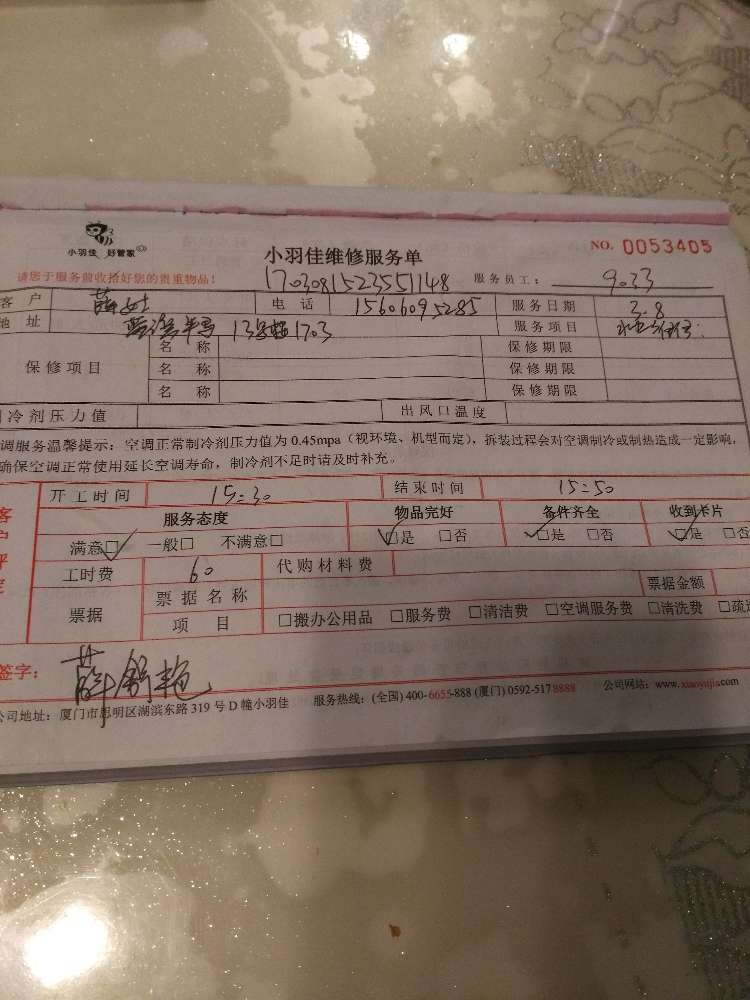 小羽佳 好管家
小羽佳维修服务单
NO. 0053405
请您于服务前收拾好您的贵重物品!
17030815235551148
服务员工: 9033
客户 薛女士 电话 15606095285 服务日期 3.8
地址 13号楼1703 服务项目
保修项目 名称 保修期限
名称 保修期限
名称 保修期限
冷剂压力值 出风口温度
调服务温馨提示:空调正常制冷剂压力值为0.45mpa(视环境、机型而定),拆装过程会对空调制冷或制热造成一定影响,
确保空调正常使用延长空调寿命,制冷剂不足时请及时补充。
开工时间 15:30 结束时间 15:50
客户评定
服务态度 物品完好 备件齐全 收到卡片
满意☑ 一般□ 不满意□ ☑是 □否 ☑是 □否 ☑是 □否
工时费 60 代购材料费
票据 票据名称 票据金额
项目 □搬办公用品 □服务费 □清洁费 □空调服务费 □清洗费 □疏通
签字: 薛舒艳
公司地址:厦门市思明区湖滨东路319号D幢小羽佳 服务热线:(全国)400-6655-888 (厦门)0592-5178888 公司网站:www.xiaoyujia.com